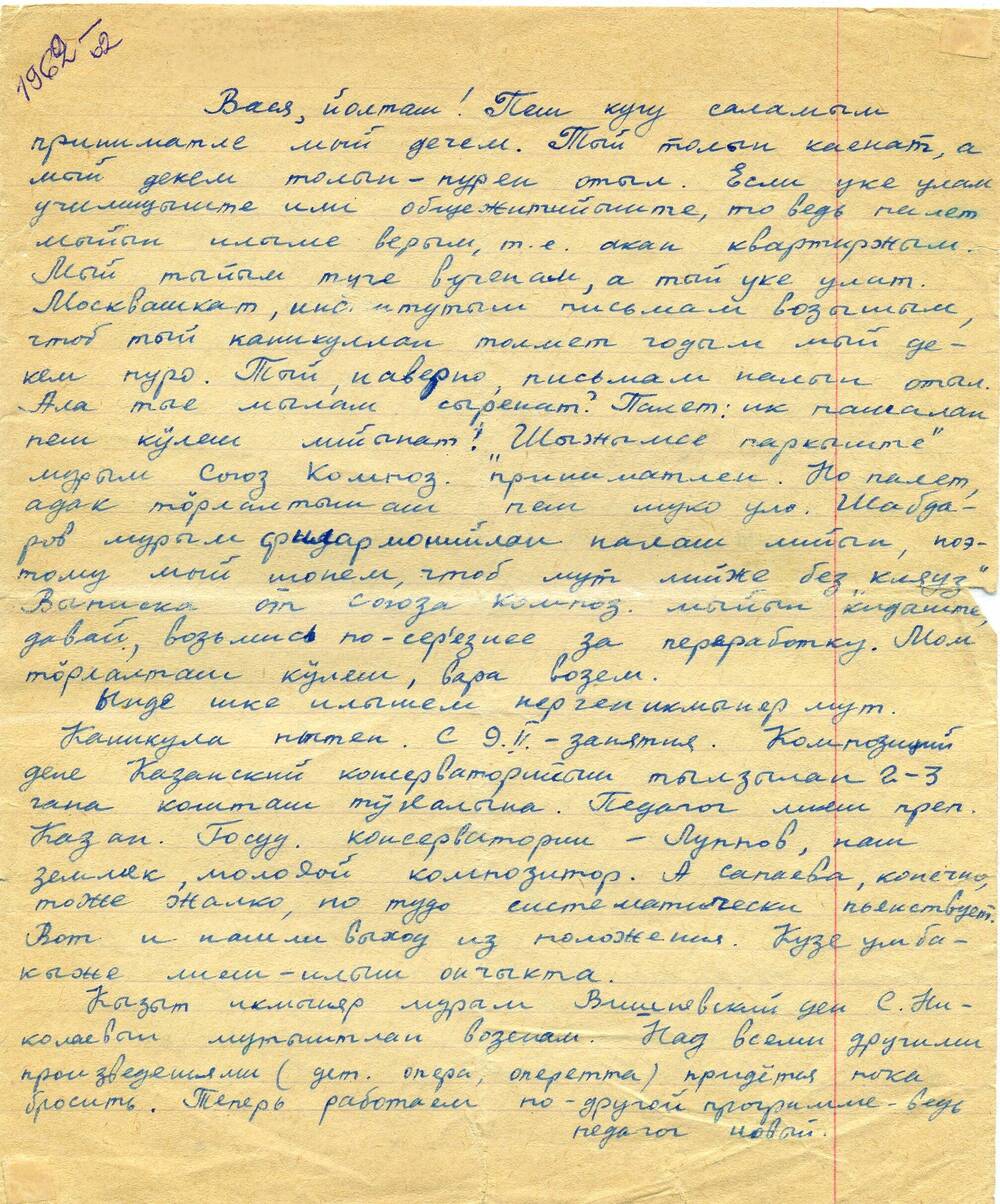 1962 –
62
Вася, йолташ! Пеш кугу саламым
приниматле мый дечем. Тый толын каенат, а
мый декем толын-пурен отыл. Если уке улам
училищыште или общежитийыште, то ведь палет
мыйын илыме верым, т.е. акан квартиржым.
Мый тыйым туге вученам, а тый уке улат.
Москвашкат, институтым письмам возышым,
чтоб тый каникуллан толмет годым мый де-
кем пуро. Тый, наверно, письмам налын отыл.
Ала тые мылам сыренат? Палет: ик пашалан
пеш кӱлеш лийынат! Шыжымсе паркыште"
мурым Союз Композ. "приниматлен. Но палет,
адак тӧрлалтышаш пеш шуко уло. Шабда-
ров мурым филармонийлан налаш лийын, поэ-
тому мый шонем, чтоб мут лийже без кляуз"
Выписка от Союза композ. мыйын кидыште,
давай, возьмись по-серьезнее за переработку. Мом
тӧрлалташ кӱлеш, вара возем.
Ынде шке илышем нерген икмыняр мут.
Каникула пытен. С 9.II. – занятия. Композиций
дене Казанский консерваторийыш тылзылан 2-3
гана кошташ тӱҥалына. Педагог лиеш преп.
Казан. Госуд. консерватории – Луппов, наш
земляк, молодой композитор. А Сапаева, конечно,
тоже жалко, но тудо систематически пьянствует.
Вот и нашли выход из положения. Кузе умба-
кыже лиеш – илыш ончыкта.
Кызыт икмыняр мурым Вишневский ден С. Ни-
колаевын мутыштлан возенам. Над всеми другими
произведениями (дет. опера, оперетта) придётся пока
бросить. Теперь работаем по-другой программе – ведь
педагог новый.